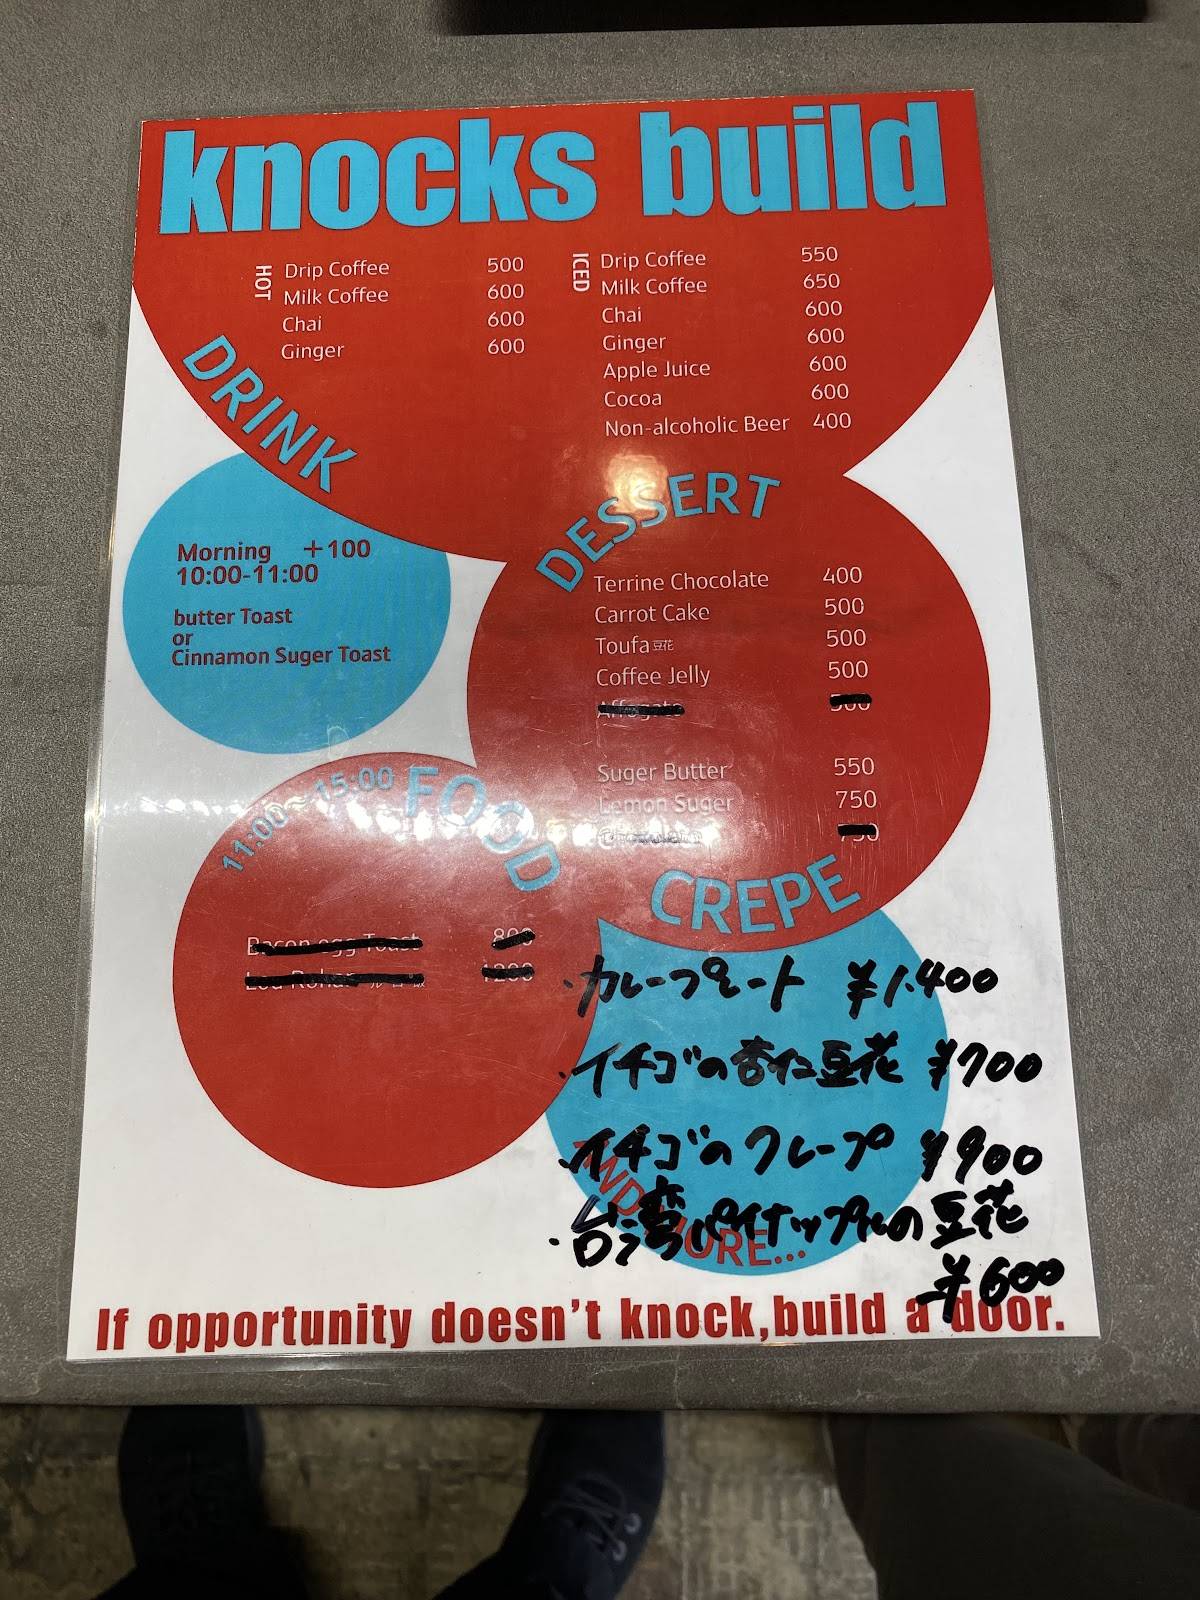 knocks build
HOT
Drip Coffee 500
Milk Coffee 600
Chai 600
Ginger 600
ICED
Drip Coffee 550
Milk Coffee 650
Chai 600
Ginger 600
Apple Juice 600
Cocoa 600
Non-alcoholic Beer 400
DRINK
Morning +100
10:00-11:00
butter Toast
or
Cinnamon Suger Toast
DESSERT
Terrine Chocolate 400
Carrot Cake 500
Toufa豆花 500
Coffee Jelly 500
Affogato 500
Suger Butter 550
Lemon Suger 750
750
CREPE
11:00~15:00 FOOD
Bacon egg Toast 800
1200
・カレープレート ¥1.400
・イチゴの杏仁豆花 ¥700
・イチゴのクレープ ¥900
・台湾パイナップルの豆花
¥600
AND MORE...
If opportunity doesn't knock,build a door.